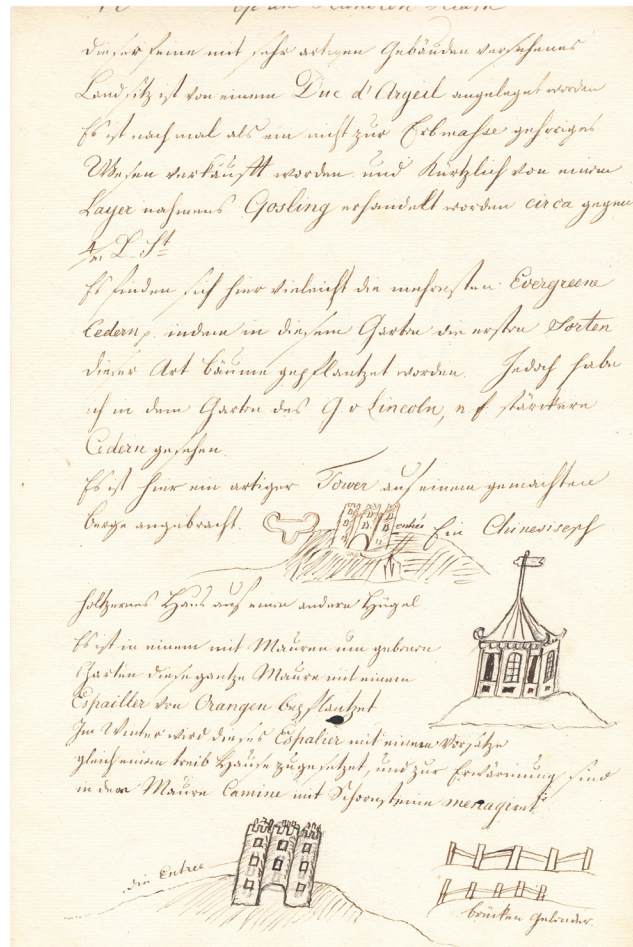 dieser seine mit sehr artigen Gebäuden versehenes
Landsitz ist von einem Duc d'Argeil angeleget worden
Es ist nach mal als ein nicht zur Erbmasse gehöriges
Wesen verkaufft worden und Kürtzlich von einem
Layer nahmens Gosling erhandelt worden circa gegen
L. St
Es finden sich hier vieleicht die mehresten Evergreene
Cedern indem in diesem Garten die ersten Sorten
dieser Art Bäume gepflantzet worden. Jedoch habe
ich in dem Garten des G v Lincoln, stärckere
Cedern gesehen.
Es ist hier ein artiger Tower auf einem gemachten
Berge angebracht. entrée Ein Chinesisch
holtzernes Haus auf einen andern Hügel
Es ist in einem mit Mauren um gebenen
Garten diese gantze Maure mit einem
Espailler von Orangen bepflantzet
Im Winter wird dieses Espalier mit einem Vorsatze
gleich einem treib Hause zugesetzet, und zur Erwärmung sind
in der Maure Camine mit Schornsteine menagirt
die Entree
brücken gelender